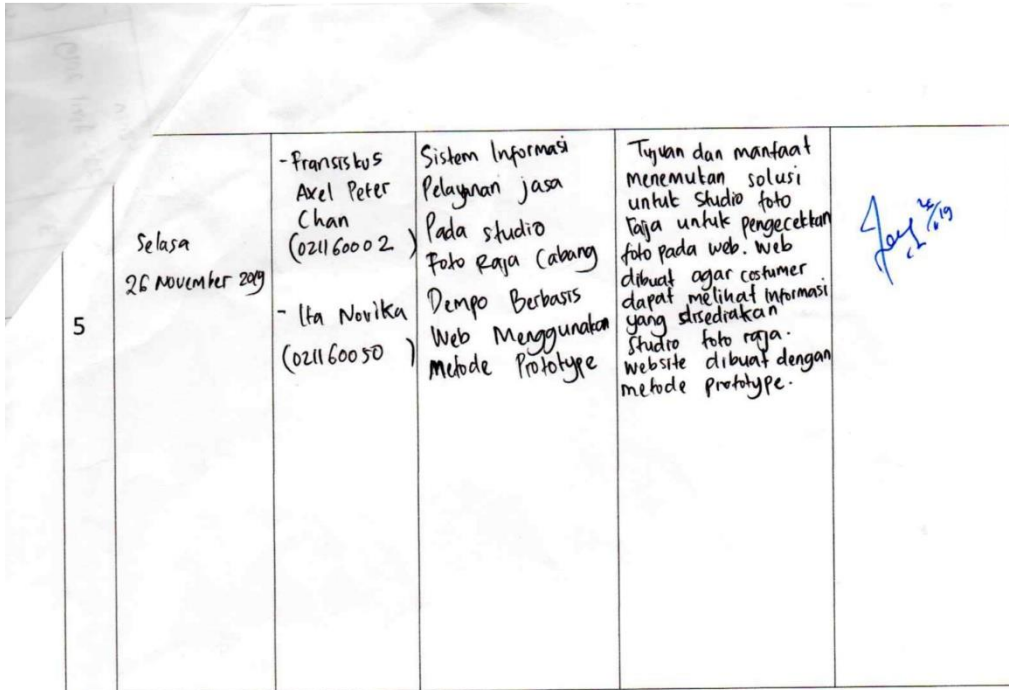 5
Selasa
26 November 2019
- Fransiskus
Axel Peter
Chan
(021160002)
- Ita Novika
(021160050)
Sistem Informasi
Pelayanan jasa
Pada studio
Foto Raja Cabang
Dempo Berbasis
Web Menggunakan
Metode Prototype
Tujuan dan manfaat
menemukan solusi
untuk Studio foto
Raja untuk pengecekkan
foto pada web. Web
dibuat agar costumer
dapat melihat informasi
yang disediakan
Studio foto raja.
Website dibuat dengan
metode prototype.